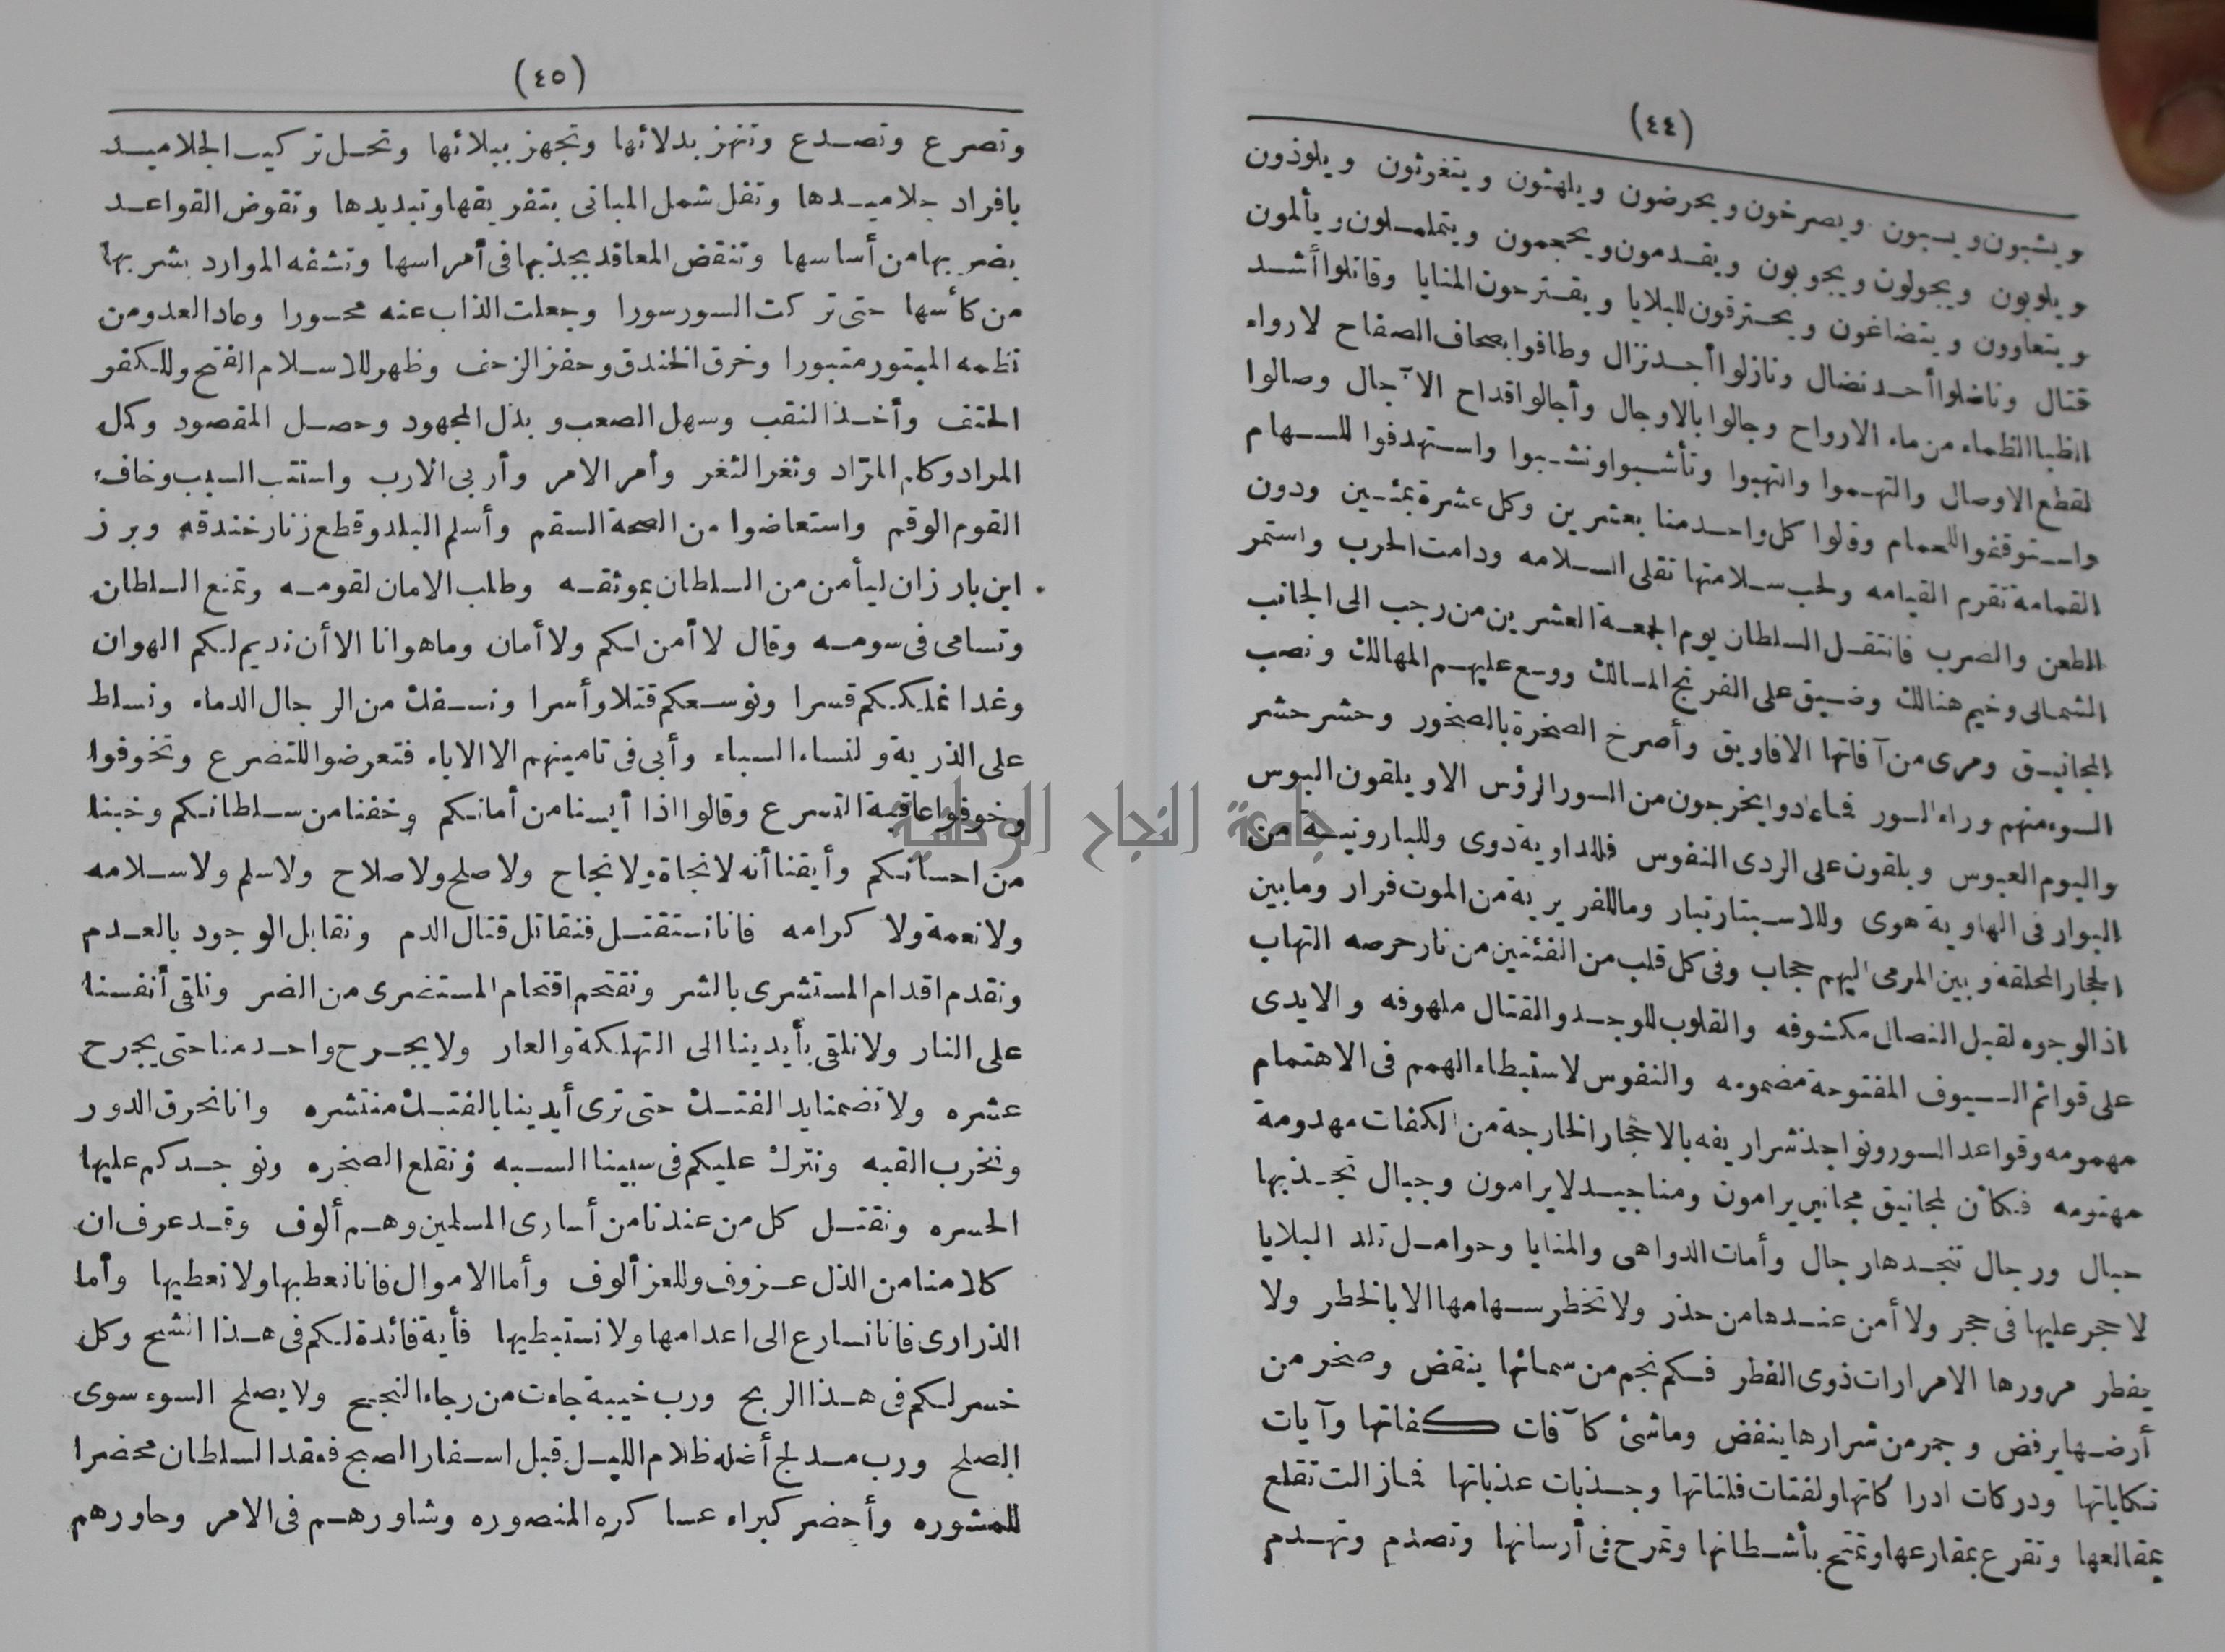 (٤٤)
ويشبون ويسبون ويصرخون ويحرضون ويلهثون ويتغوثون ويلوذون
ويلوبون ويجولون ويجوبون ويقدمون ويحجمون ويتململون ويألمون
ويتعاوون ويتضاغون ويحترقون للبلايا ويقترحون المنايا وقاتلوا أشد
قتال وناضلوا أحد نضال ونازلوا أجد نزال وطافوا بصحاف الصفاح لارواء
الظبا الظماء من ماء الارواح وجالوا بالاوجال وأجالوا قداح الآجال وصالوا
لقطع الاوصال والتهموا والتهبوا وتأشبوا ونشبوا واستهدفوا للسهام
واستوقفوا للحمام وقالوا كل واحد منا بعشرين وكل عشرة بمئين ودون
القمامة تقوم القيامه ولحب سلامتها تقلى السلامه ودامت الحرب واستمر
الطعن والضرب فانتقل السلطان يوم الجمعة العشرين من رجب الى الجانب
الشمالى وخيم هنالك وضيق على الفرنج المسالك ووسع عليهم المهالك ونصب
المجانيق ومرى من آفاتها الافاويق وأصرخ الصخرة بالصخور وحشر حشر
السوء منهم وراء السور فما عادوا يخرجون من السور الرؤس الا ويلقون البوس
واليوم العبوس ويلقون على الردى النفوس فللداوية دوى وللبارونية من
البوار فى الهاوية هوى وللاسبتار تبار وما للفريرية من الموت فرار وما بين
الحجار المحلقة وبين المرمى اليهم حجاب وفى كل قلب من الفئتين من نار حرصه التهاب
اذ الوجوه لقبل النصال مكشوفه والقلوب للوجد والقتال ملهوفه والايدى
على قوائم السيوف المفتوحة مضمومه والنفوس لاستبطاء الهمم فى الاهتمام
مهمومه وقواعد السور ونواجذ شراريفه بالاحجار الخارجة من الكفات مهدومة
مهتومه فكأن المجانيق مجانين يرامون ومناجيد لا يرامون وجبال تجذبها
حبال ورجال تنجدها رجال وأمات الدواهى والمنايا وحوامل تلد البلايا
لا حجر عليها فى حجر ولا أمن عندها من حذر ولا تخطر سهامها الا بالخطر ولا
يفطر مرورها الا مرارات ذوى الفطر فكم نجم من سمائها ينقض وصخر من
أرضها يرفض وجمر من شرارها ينفض وما شئ كآفات كفاتها وآيات
نكاياتها ودركات ادراكاتها ولفتات فلتاتها وجذبات عذباتها فمازالت تقلع
بمقالعها وتقرع بمقارعها وتمتح بأشطانها وتمرح فى أرسانها وتصدم وتهدم
(٤٥)
وتصرع وتصدع وتنهز بدلائها وتجهز ببلائها وتحل تركيب الجلاميد
بافراد جلاميدها وتفل شمل المبانى بتفريقها وتبديدها وتقوض القواعد
بضربها من أساسها وتنقض المعاقد بجذبها فى أمراسها وتشفه الموارد بشربها
من كأسها حتى تركت السور سورا وجعلت الذاب عنه محسورا وعاد العدو من
نظمه المبتور متبورا وخرق الخندق وحفز الزحف وظهر للاسلام الفتح وللكفر
الحتف وأخذ النقب وسهل الصعب وبذل المجهود وحصل المقصود وكمل
المراد وكلم المرّاد وثغر الثغر وأمر الامر وأربى الارب واستتب السبب وخاف
القوم الوقم واستعاضوا من الصحة السقم وأسلم البلد وقطع زنار خندقه وبرز
ابن بارزان ليأمن من السلطان بموثقه وطلب الامان لقومه وتمنع السلطان
وتسامى فى سومه وقال لا أمن لكم ولا أمان وما هوانا الا أن نديم لكم الهوان
وغدا نملككم قسرا ونوسعكم قتلا وأسرا ونسفك من الرجال الدماء ونسلط
على الذرية والنساء السباء وأبى فى تامينهم الا الاباء فتعرضوا للتضرع وتخوفوا
وخوفوا عاقبة التسرع وقالوا اذا أيسنا من أمانكم وخفنا من سلطانكم وخبنا
من احسانكم وأيقنا أنه لا نجاة ولا نجاح ولا صلح ولا صلاح ولا سلم ولا سلامه
ولا نعمة ولا كرامه فانا نستقتل فنقاتل قتال الدم ونقابل الوجود بالعدم
ونقدم اقدام المستشرى بالشر ونقتحم اقتحام المستضرى من الضر ونلقى أنفسنا
على النار ولا نلقى بأيدينا الى التهلكة والعار ولا يجرح واحد منا حتى يجرح
عشره ولا تضمنا يد الفتك حتى ترى أيدينا بالفتك منتشره وانا نحرق الدور
ونخرب القبه ونترك عليكم فى سبينا السبه ونقلع الصخره ونوجدكم عليها
الحسره ونقتل كل من عندنا من أسارى المسلمين وهم ألوف وقد عرف ان
كلا منا من الذل عزوف وللعز ألوف وأما الاموال فانا نعطبها ولا نعطيها وأما
الذرارى فانا نسارع الى اعدامها ولا نستبطيها فأية فائدة لكم فى هذا الشح وكل
خسر لكم فى هذا الربح ورب خيبة جاءت من رجاء النجح ولا يصلح السوء سوى
الصلح ورب مدلج أضله ظلام الليل قبل اسفار الصبح فعقد السلطان محضرا
للمشوره وأحضر كبراء عساكره المنصوره وشاورهم فى الامر وحاورهم
جامعة النجاح الوطنية